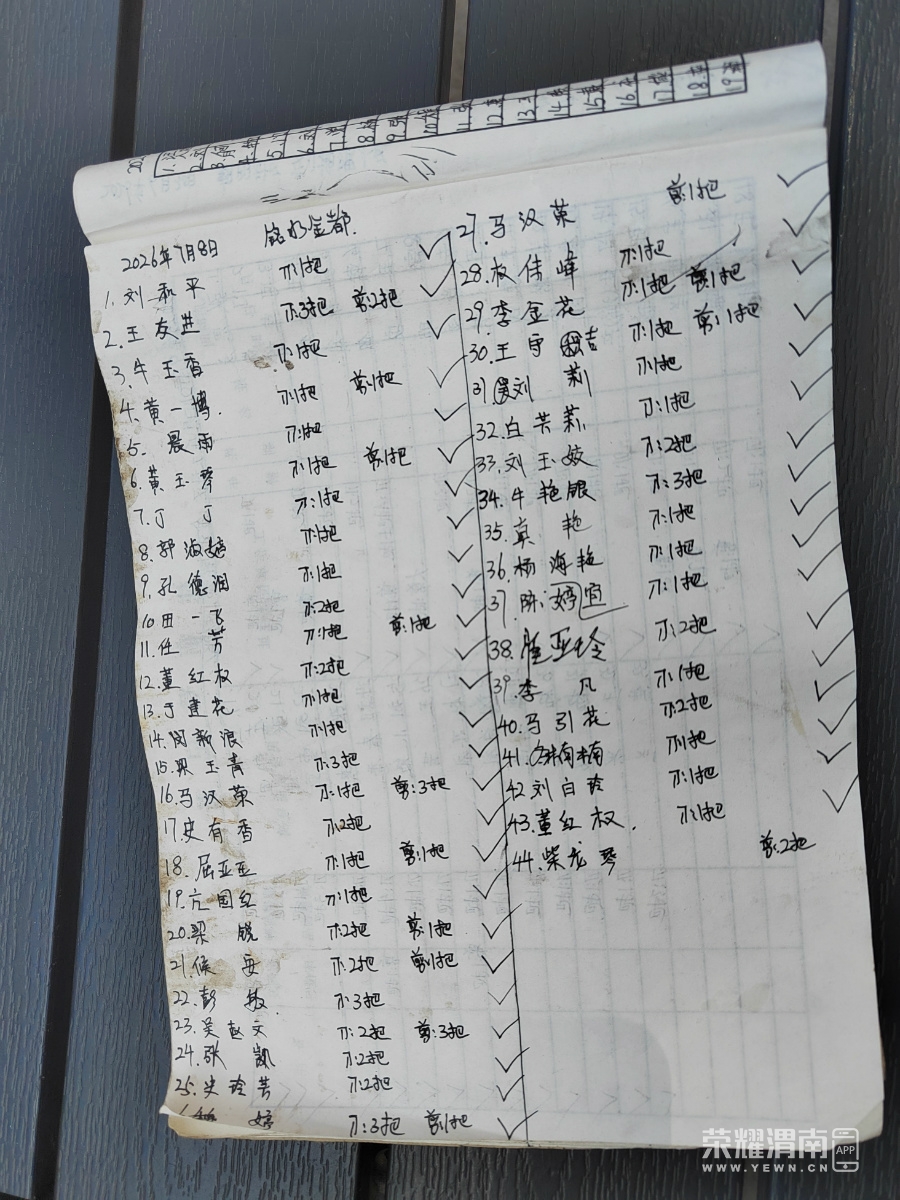 2026年7月8日 铭水金都.
1. 刘和平 不:1把
2. 王友进 不:3把 剪:2把
3. 牛玉香 不:1把
4. 黄一博. 不:1把 剪:1把
5. 晨雨 不:1把
6. 黄玉琴 不:1把 剪:1把
7. 丁丁 不:1把
8. 郭淑婷 不:1把
9. 孔德润 不:1把
10 田一飞 不:2把
11. 任芳 不:1把 剪:1把
12. 董红权 不:2把
13. 于建花 不:1把
14. 闵新浪 不:1把
15. 梁玉青 不:3把
16. 马汉荣 不:1把 剪:3把
17. 史有香 不:2把
18. 屈亚亚 不:1把 剪:1把
19. 亢国红 不:1把
20. 梁锐 不:2把 剪:1把
21. 侯 不:2把 剪:1把
22. 彭敏 不:3把
23. 吴赵文 不:2把 剪:3把
24. 张凯 不:2把
25. 史玲芳 不:2把
婷 不:3把 剪:1把
27. 马汉荣 剪:1把
28. 权佳峰 不:1把
29. 李金花 不:1把 剪:1把
30. 王宇吉 不:1把 剪:1把
31 刘莉 不:1把
32. 白芳莉 不:1把
33. 刘玉姣 不:2把
34. 牛艳银 不:3把
35. 袁艳 不:1把
36. 杨海艳 不:1把
37. 陈婷宜 不:1把
38. 亚玲 不:2把
39. 李凡 不:1把
40. 马引花 不:2把
41. 楠楠 不:1把
42 刘白玲 不:1把
43. 董红权. 不:1把
44. 柴龙琴 剪:2把
荣耀渭南 APP
WWW.YEWN.CN